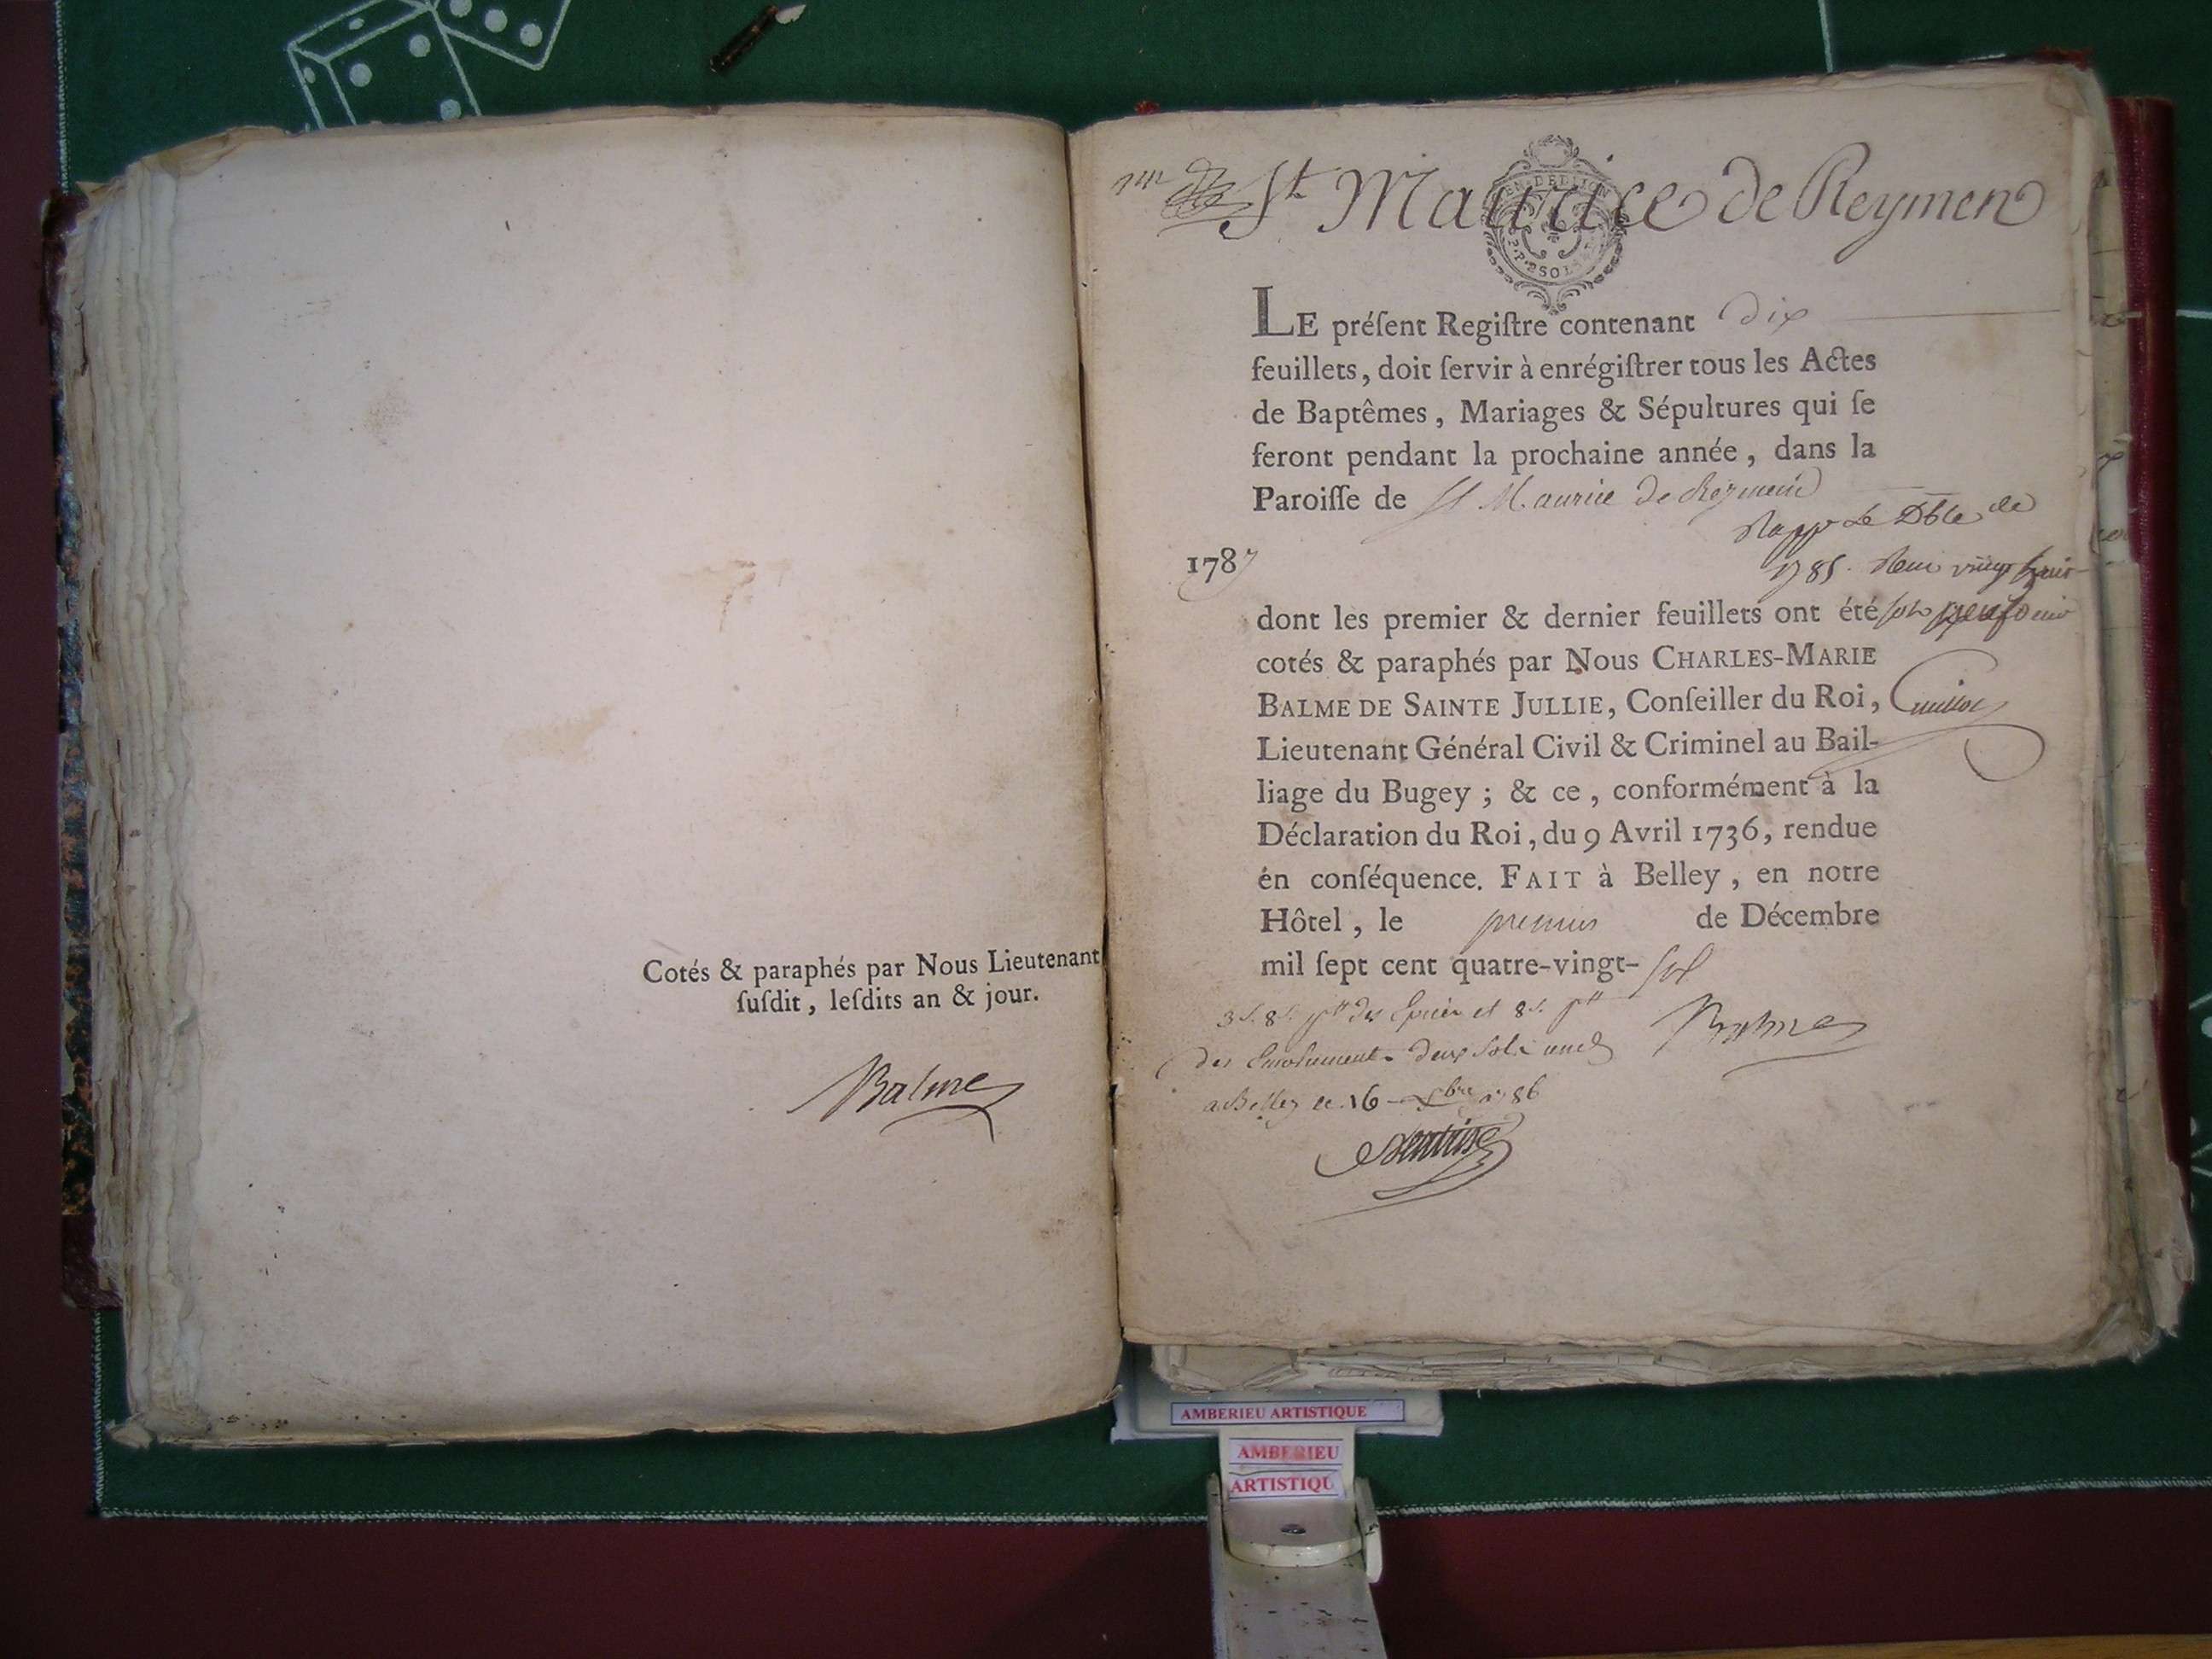 Cotés & paraphés par Nous Lieutenant
ſuſdit, leſdits an & jour.
Balme
St Maurice de Reymen
GEN. DE DIJON
LE préſent Regiſtre contenant dix
feuillets, doit ſervir à enrégiſtrer tous les Actes
de Baptêmes, Mariages & Sépultures qui ſe
feront pendant la prochaine année, dans la
Paroiſſe de St Maurice de Reymend
Rapp le Dble de
1787
1785. Reçu vingt huit
dont les premier & dernier feuillets ont été
sols
cotés & paraphés par Nous CHARLES-MARIE
BALME DE SAINTE JULLIE, Conſeiller du Roi,
Lieutenant Général Civil & Criminel au Bail-
liage du Bugey ; & ce, conformément à la
Déclaration du Roi, du 9 Avril 1736, rendue
én conſéquence. FAIT à Belley, en notre
Hôtel, le premier de Décembre
mil ſept cent quatre-vingt- six
3 l. 8 s. pr des Epices et 8 s. pr
Balme
des Emolument. deux sols
a Belley le 16 Xbre 1786
AMBERIEU ARTISTIQUE
AMBERIEU
ARTISTIQU